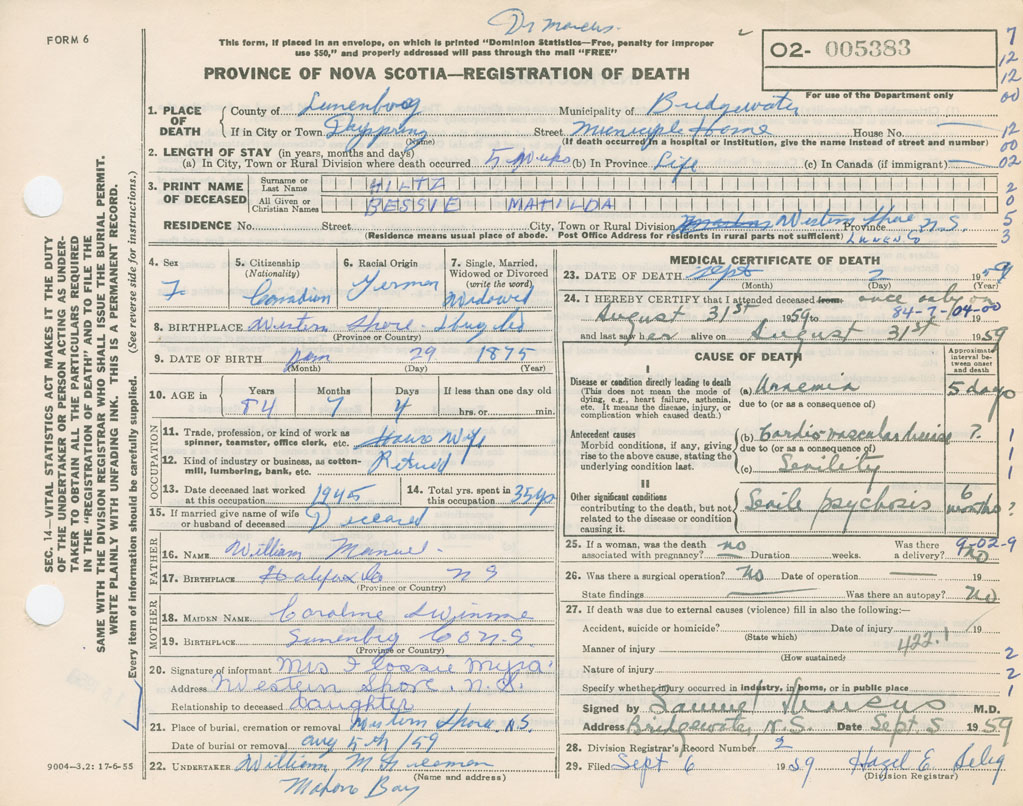 Dr Marcus.
FORM 6
This form, if placed in an envelope, on which is printed "Dominion Statistics—Free, penalty for improper
use $50," and properly addressed will pass through the mail "FREE"
PROVINCE OF NOVA SCOTIA—REGISTRATION OF DEATH
02- 005383
For use of the Department only
7
12
12
00
12
00
02
2
0
5
3
SEC. 14—VITAL STATISTICS ACT MAKES IT THE DUTY
OF THE UNDERTAKER OR PERSON ACTING AS UNDER-
TAKER TO OBTAIN ALL THE PARTICULARS REQUIRED
IN THE "REGISTRATION OF DEATH" AND TO FILE THE
SAME WITH THE DIVISION REGISTRAR WHO SHALL ISSUE THE BURIAL PERMIT.
WRITE PLAINLY WITH UNFADING INK. THIS IS A PERMANENT RECORD.
Every item of information should be carefully supplied. (See reverse side for instructions.)
1. PLACE OF DEATH County of Lunenburg Municipality of Bridgewater
If in City or Town Dayspring (Name) Street Municiple Home House No. —
(If death occurred in a hospital or institution, give the name instead of street and number)
2. LENGTH OF STAY (in years, months and days)
(a) In City, Town or Rural Division where death occurred 5 weeks (b) In Province Life (c) In Canada (if immigrant) —
3. PRINT NAME OF DECEASED Surname or Last Name HILTZ
All Given or Christian Names BESSIE MATILDA
RESIDENCE No. Street City, Town or Rural Division Western Shore Province N.S.
(Residence means usual place of abode. Post Office Address for residents in rural parts not sufficient) LUNEN Co
4. Sex F
5. Citizenship (Nationality) Canadian
6. Racial Origin German
7. Single, Married, Widowed or Divorced (write the word) Widowed
8. BIRTHPLACE Western Shore
(Province or Country)
9. DATE OF BIRTH Jan 29 1875
(Month) (Day) (Year)
10. AGE in Years 84 Months 7 Days 4 If less than one day old hrs. or min.
OCCUPATION
11. Trade, profession, or kind of work as spinner, teamster, office clerk, etc. House Wife
12. Kind of industry or business, as cotton-mill, lumbering, bank, etc. Retired
13. Date deceased last worked at this occupation 1945 14. Total yrs. spent in this occupation 35 yrs
15. If married give name of wife or husband of deceased Deceased
FATHER
16. NAME William Manuel
17. BIRTHPLACE Halifax Co N S
(Province or Country)
MOTHER
18. MAIDEN NAME Caroline Swinme
19. BIRTHPLACE Lunenbrg Co N S
(Province or Country)
20. Signature of informant Mrs Flossie Myra
Address Western Shore, N.S.
Relationship to deceased Daughter
21. Place of burial, cremation or removal Western Shore, N.S.
Date of burial or removal aug 5th/59
22. UNDERTAKER William M Freeman
(Name and address)
Mahone Bay
9004—3.2: 17-6-55
MEDICAL CERTIFICATE OF DEATH
23. DATE OF DEATH Sept 2 1959
(Month) (Day) (Year)
24. I HEREBY CERTIFY that I attended deceased from once only on
August 31st 1959 to 84-7-/04-00
and last saw her alive on August 31st 1959
CAUSE OF DEATH
Approximate interval between onset and death
I
Disease or condition directly leading to death (a) Uraemia 5 days
(This does not mean the mode of dying, e.g., heart failure, asthenia, etc. It means the disease, injury, or complication which caused death.)
due to (or as a consequence of)
Antecedent causes (b) Cardiovascular disease ?
Morbid conditions, if any, giving rise to the above cause, stating the underlying condition last.
due to (or as a consequence of)
(c) Senility
1
1
1
II
Other significant conditions contributing to the death, but not related to the disease or condition causing it.
Senile psychosis 6 months ?
1
25. If a woman, was the death associated with pregnancy? no Duration weeks. Was there a delivery? no
9-02-9
26. Was there a surgical operation? no Date of operation — 19
State findings — Was there an autopsy? no
27. If death was due to external causes (violence) fill in also the following:—
Accident, suicide or homicide? Date of injury 19
(State which)
422.1
Manner of injury
(How sustained)
2
Nature of injury
2
Specify whether injury occurred in industry, in home, or in public place
1
Signed by Samuel Marcus M.D.
Address Bridgewater, N.S. Date Sept. 5 1959
28. Division Registrar's Record Number 2
29. Filed Sept 6 1959 Hazel E. Selig
(Division Registrar)